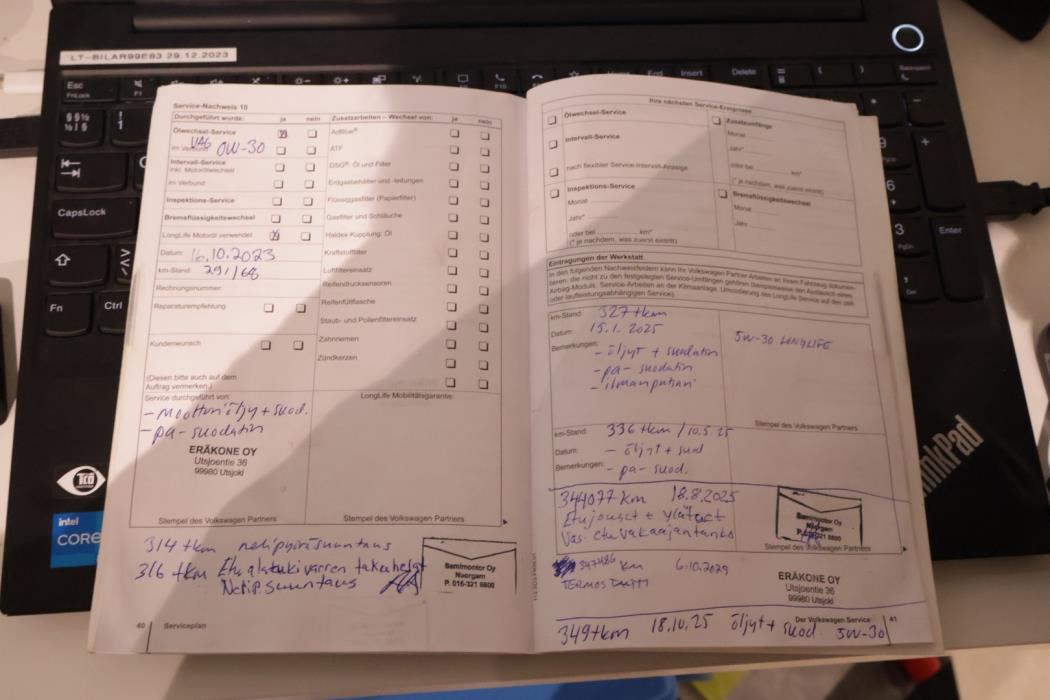 LT-BILAR99E83 29.12.2023
Service-Nachweis 10
Durchgeführt wurde: ja nein
Ölwechsel-Service
im Verbund
VAG 0W-30
Intervall-Service
inkl. Motorölwechsel
im Verbund
Inspektions-Service
Bremsflüssigkeitswechsel
LongLife Motoröl verwendet
Datum: 16.10.2023
km-Stand:
Rechnungsnummer:
Reparaturempfehlung
Kundenwunsch
(Diesen bitte auch auf dem
Auftrag vermerken.)
Zusatzarbeiten – Wechsel von: ja nein
AdBlue®
ATF
DSG®: Öl und Filter
Erdgasbehälter und -leitungen
Flüssiggasfilter (Papierfilter)
Gasfilter und Schläuche
Haldex-Kupplung: Öl
Kraftstofffilter
Luftfiltereinsatz
Reifendrucksensoren
Reifenfüllflasche
Staub- und Pollenfiltereinsatz
Zahnriemen
Zündkerzen
Service durchgeführt von:
- moottoriöljy + suod.
- pa-suodatin
ERÄKONE OY
Utsjoentie 36
99980 Utsjoki
Stempel des Volkswagen Partners
LongLife Mobilitätsgarantie:
Stempel des Volkswagen Partners
314 tkm nelipyöräsuuntaus
316 tkm Etu alatukivarren takahelat
Nelip. suuntaus
Samimontor Oy
Nuorgam
P. 016-321 8800
40 Serviceplan
Ihre nächsten Service-Ereignisse
Ölwechsel-Service
Intervall-Service
nach flexibler Service-Intervall-Anzeige
Inspektions-Service
Monat
Jahr*
oder bei km*
(* je nachdem, was zuerst eintritt)
Zusatzumfänge
Monat
Jahr*
oder bei km*
(* je nachdem, was zuerst eintritt)
Bremsflüssigkeitswechsel
Monat
Jahr
Eintragungen der Werkstatt
In den folgenden Nachweisfeldern kann Ihr Volkswagen Partner Arbeiten an Ihrem Fahrzeug dokumen-
tieren, die nicht zu den festgelegten Service-Umfängen gehören (beispielsweise den Austausch eines
Airbag-Moduls, Service-Arbeiten an der Klimaanlage, Umstellung des LongLife Service auf den zeit-
oder laufleistungsabhängigen Service).
km-Stand: 327 tkm
Datum: 15.1. 2025
Bemerkungen: - öljyt + suodatin
- pa-suodatin
- ilmanputsari
5W-30 LONGLIFE
Stempel des Volkswagen Partners
km-Stand: 336 tkm / 10.5.25
Datum: - öljyt + suod
Bemerkungen: - pa-suod.
344077 km 18.8.2025
Etujouset + ylälaet
Vas. etuvakaajantanko
Samimontor Oy
Nuorgam
P. 016-321 8800
Stempel des Volkswagen Partners
347486 km
TERMOSTAATTI
ERÄKONE OY
Utsjoentie 36
99980 Utsjoki
Der Volkswagen Service 41
349 tkm 18.10.25 öljyt + suod 5W-30
Esc
FnLock
CapsLock
Fn
Ctrl
End
Insert
Delete
Enter
ThinkPad
intel
CORE